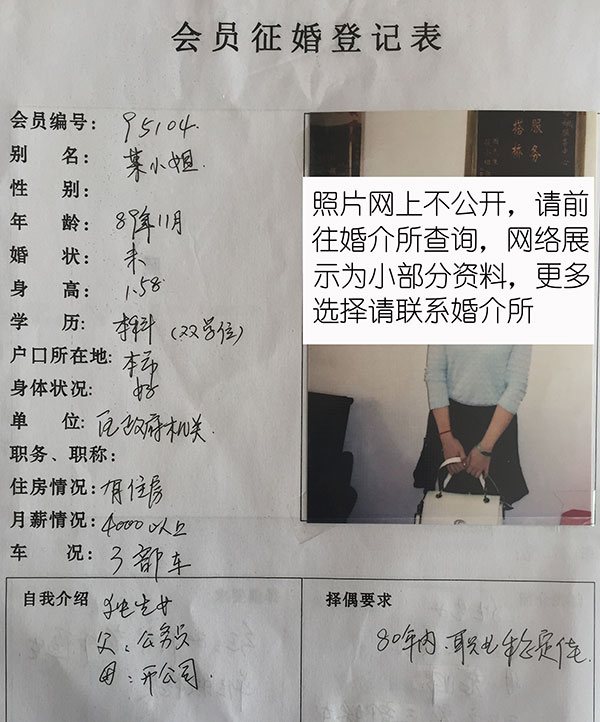 会员征婚登记表
会员编号: 95104.
别 名: 葉小姐.
性 别:
年 龄: 89年11月
婚 状: 未
身 高: 1.58
学 历: 本科 (双学位)
户口所在地: 本市
身体状况: 好
单 位: 区政府机关.
职务、职称:
住房情况: 有住房
月薪情况: 4000以上
车 况: 3部车
服务
搭桥
照片网上不公开,请前
往婚介所查询,网络展
示为小部分资料,更多
选择请联系婚介所
自我介绍
独生女
父: 公务员
母: 开公司.
择偶要求
80年内. 职业稳定佳.